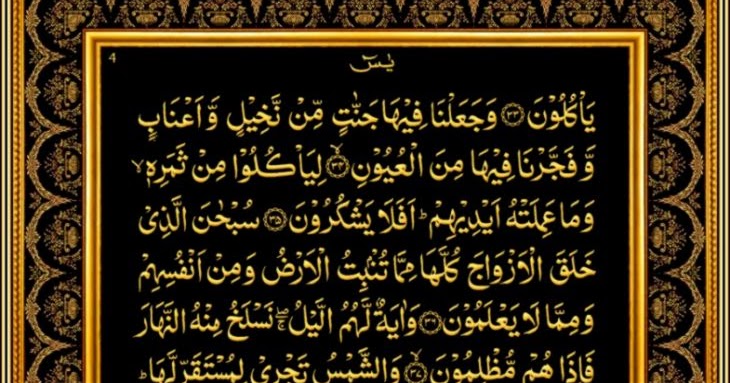 4
يٰسٓ
يَاْكُلُوْنَ ﴿۳۳﴾ وَجَعَلْنَا فِيْهَا جَنّٰتٍ مِّنْ نَّخِيْلٍ وَّ اَعْنَابٍ
وَّ فَجَّرْنَا فِيْهَا مِنَ الْعُيُوْنِ ﴿۳۴﴾ لِيَاْكُلُوْا مِنْ ثَمَرِهٖ ۙ
وَمَا عَمِلَتْهُ اَيْدِيْهِمْ ؕ اَفَلَا يَشْكُرُوْنَ ﴿۳۵﴾ سُبْحٰنَ الَّذِىْ
خَلَقَ الْاَزْوَاجَ كُلَّهَا مِمَّا تُنْۢبِتُ الْاَرْضُ وَمِنْ اَنْفُسِهِمْ
وَمِمَّا لَا يَعْلَمُوْنَ ﴿۳۶﴾ وَاٰيَةٌ لَّهُمُ الَّيْلُ ۖۚ نَسْلَخُ مِنْهُ النَّهَارَ
فَاِذَا هُمْ مُّظْلِمُوْنَ ﴿۳۷﴾ وَالشَّمْسُ تَجْرِىْ لِمُسْتَقَرٍّ لَّهَا ؕ